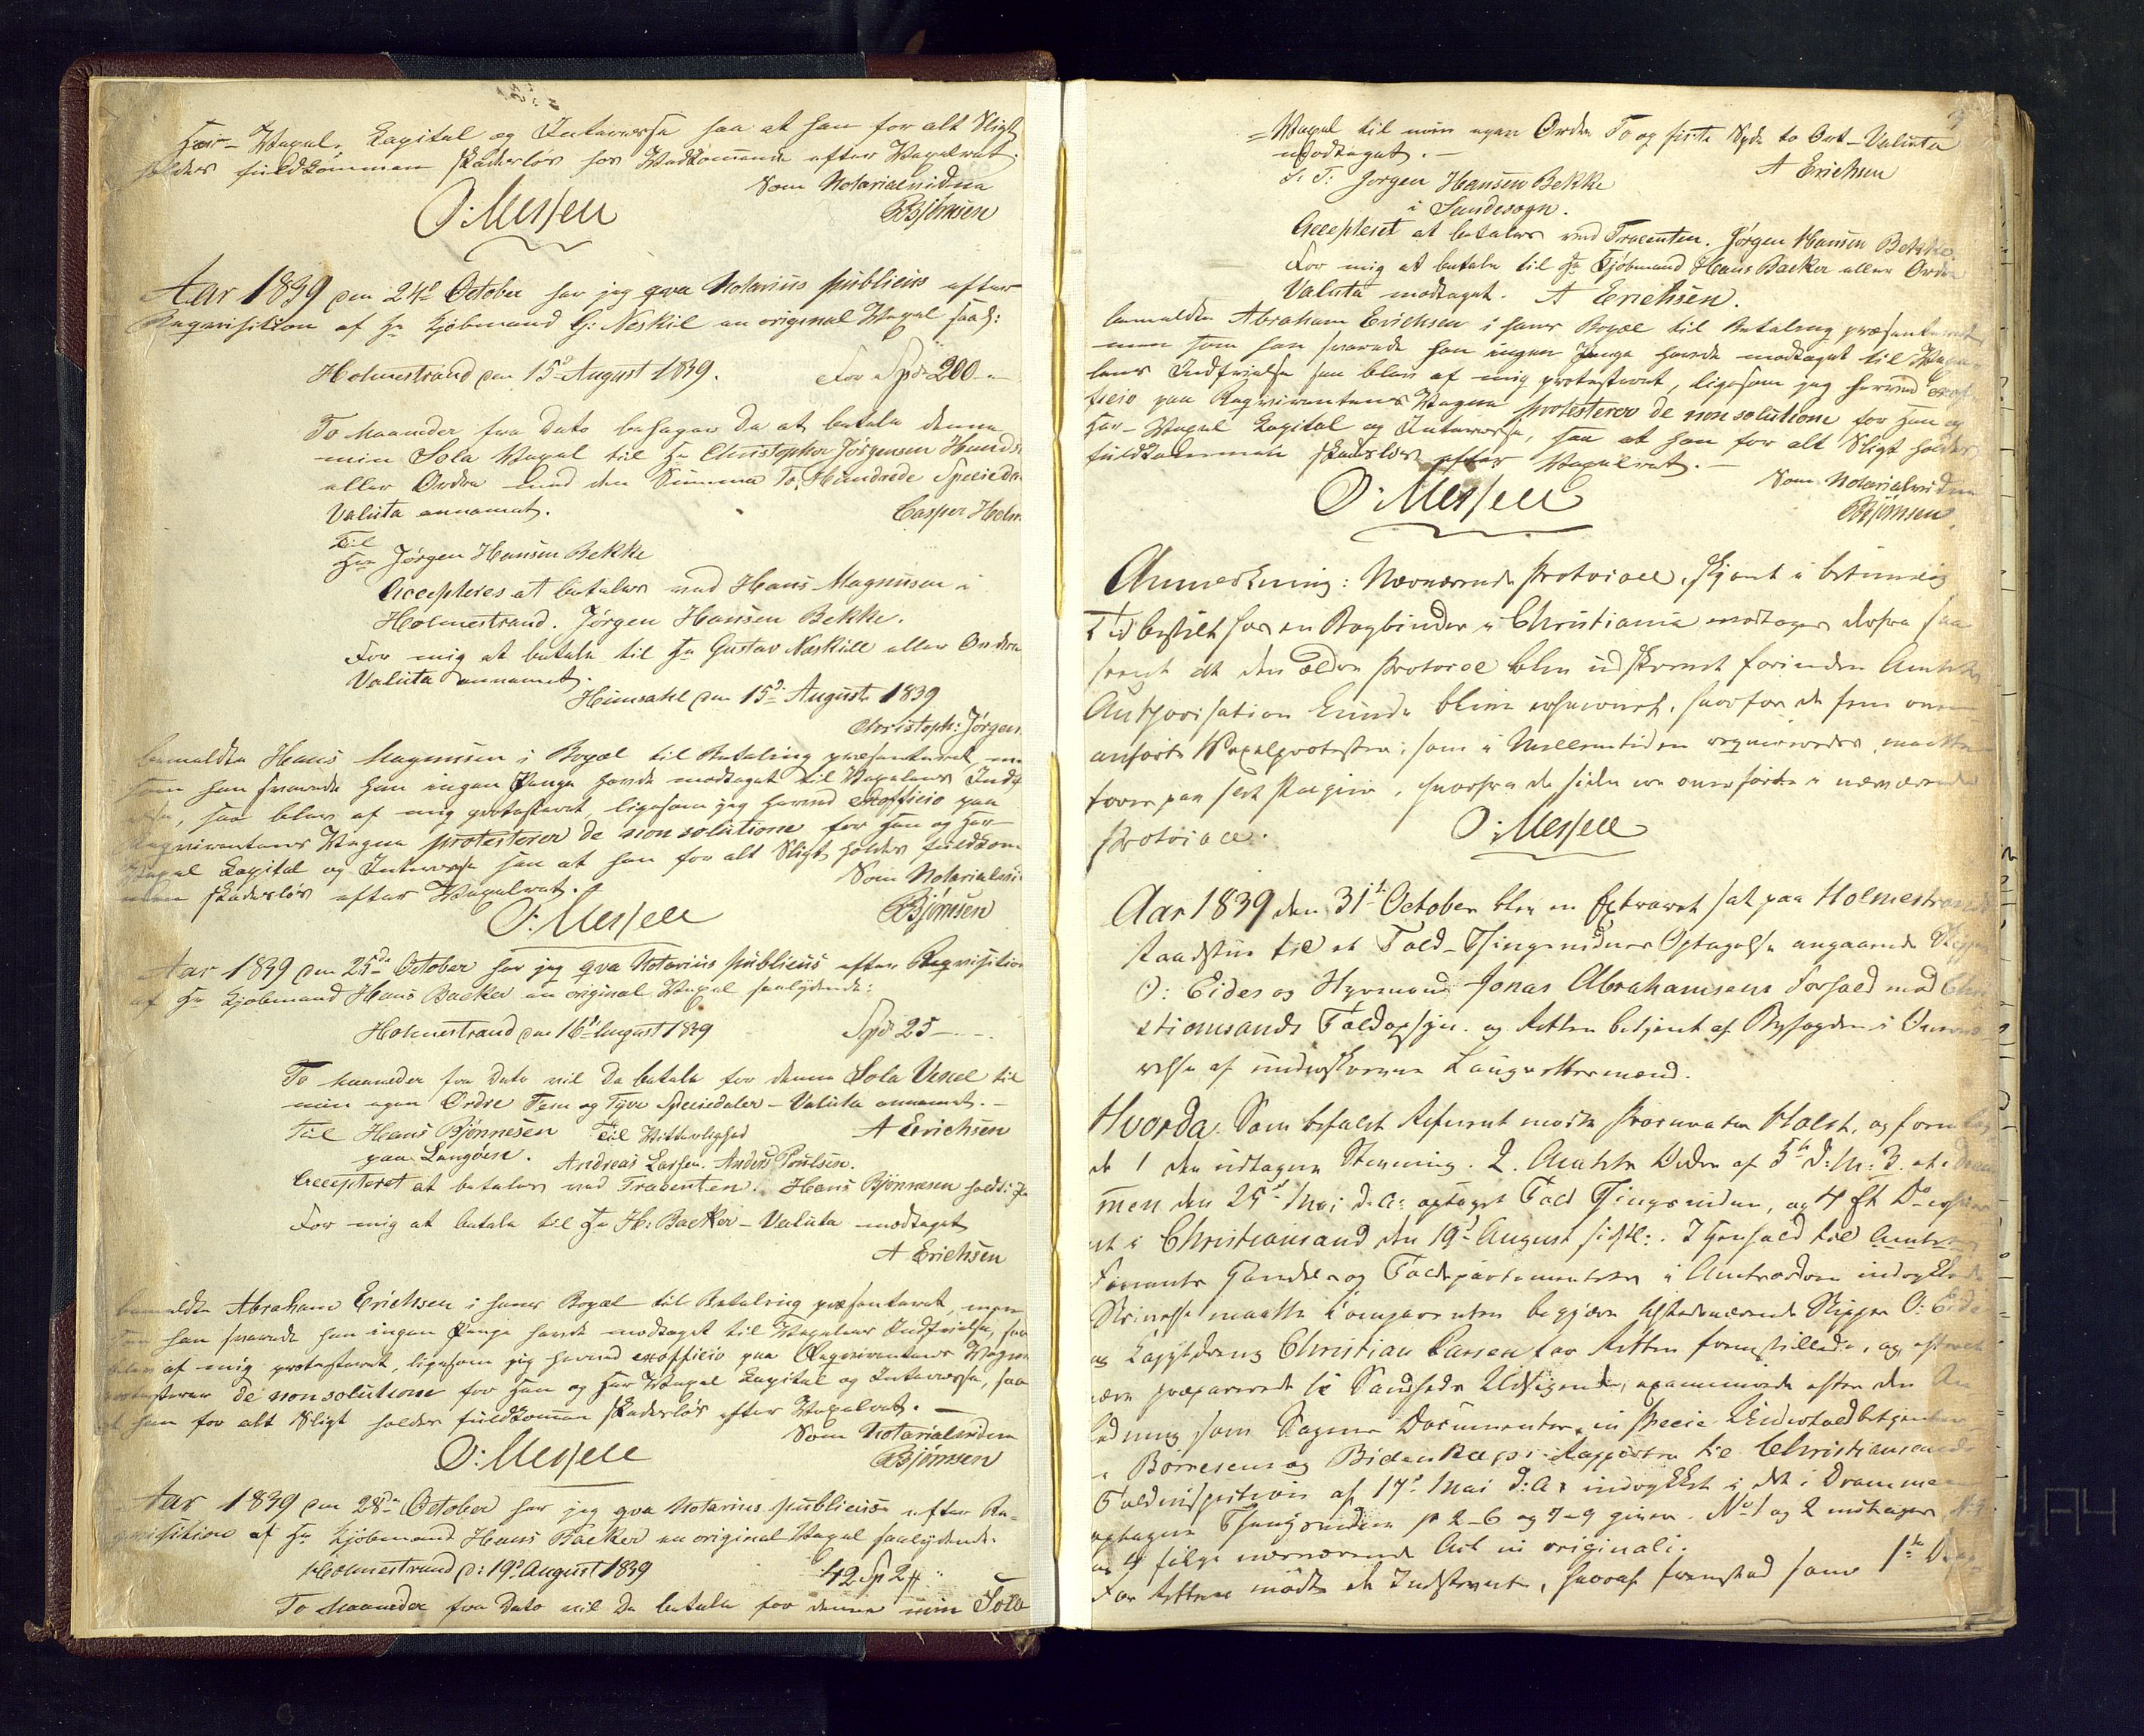 Har-Vexel, Capital og Interesse saa at han for alt Sligt
holdes fuldkommen skadesløs hos Vedkommende efter Vexelret.
Som Notarialvidne
O: Messell
BBjørnsen
Aar 1839 den 24de October har jeg qva Notarius publicus efter
Requisition af Hr Kjøbmand G: Neskil en original Vexel saal:
Holmestrand den 15de August 1839. For Spd 200 –
To Maaneder fra Dato behager De at betale denne
min Sola Vexel til Hr Christopher Jørgensen
eller Ordre med den Summa To Hundrede Speciedlr
Valuta annamet.
Casper Holm
Til
Hr Jørgen Hansen Bekke
Accepteres at betales ved Hans Magnusen i
Holmestrand. Jørgen Hansen Bekke.
For mig at betale til Hr Gustav Neskill eller Ordre
Valuta annamet.
den 15de August 1839
Christoph: Jørgens
bemeldte Hans Magnusen i Bopæl til Betaling præsenteret, men
som han svarede han ingen Penge havde modtaget til Vexelens Indf
, saa blev af mig protesteret, ligesom jeg herved exofficio paa
Reqvirentens Vegne protesterer de non solutione for Han og Har
Vexel Capital og Interesse saa at han for alt Sligt holdes fuldkom
men skadesløs efter Vexelret.
Som Notarialvi
O: Messell
BBjørnsen
Aar 1839 den 25de October har jeg qva Notarius publicus efter Reqvisition
af Hr Kjøbmand Hans Backer en original Vexel saalydende:
Holmestrand den 16de August 1839 Spd 25 – –
To Maaneder fra Dato vil De betale for denne Sola Vexel til
min egen Ordre Fem og Tyve Speciedaler – Valuta annamet. –
Til Hans Bjønnesen Til Vitterlighed A Erichsen
paa Langøen. Andreas Larsen. Anders Poulsen.
Accepteret at betales ved Tracenten. Hans Bjønnesen
For mig at betale til Hr H: Backer – Valuta modtaget
A Erichsen
bemeldte Abraham Erichsen i hans Bopæl til Betaling præsenteret, men
som han svarede han ingen Penge havde modtaget til Vexelens Indfrielse, saa
blev af mig protesteret, ligesom jeg herved exofficio paa Reqvirentens Vegne
protesterer de non solutione for Han og Har Vexel Capital og Interesse, saa
at han for alt Sligt holdes fuldkommen skadesløs efter Vexelret. –
Som Notarialvidne
O: Messell
BBjørnsen
Aar 1839 den 28de October har jeg qva Notarius publicus efter Re-
qvisition af Hr Kjøbmand Hans Backer en original Vexel saalydende.
Holmestrand d: 19de August 1839 42 Sp 2
To Maaneder fra Dato vil De betale for denne min Sola
= Vexel til min egen Ordre To og firti Spd to Ort – Valuta
modtaget. –
A Erichsen
S: T: Jørgen Hansen Bekke
i Sandesogn.
Accepteret at betales ved Tracenten. Jørgen Hansen Bekke
For mig at betale til Hr Kjøbmand Hans Backer eller Ordre
Valuta modtaget. A Erichsen.
bemeldte Abraham Erichsen i hans Bopæl til Betaling præsenteret
men som han svarede han ingen Penge havde modtaget til Vexe-
lens Indfrielse saa blev af mig protesteret, ligesom jeg herved exof-
ficio paa Reqvirentens Vegne protesterer de non solutione for Han og
Har-Vexel Capital og Interesse, saa at han for alt Sligt holdes
fuldkommen skadesløs efter Vexelret. –
Som Notarialvidne
O: Messell
BBjørnsen
Anmerkning: Nærværende Protocoll, skjønt i betimelig
Tid bestilt hos en Bogbinder i Christiania modtoges derfra saa
seent at den ældre Protocol blev udskrevet forinden Amtets
Authorisation kunde blive erhvervet, hvorfor de fem oven
anførte Vexelprotester, som i Mellemtiden reqvireredes, maatte
føres paa løst Papir, hvorfra de siden ere overførte i nærværende
Protocoll.
O: Messell
Aar 1839 den 31te October blev en Extraret sat paa Holmestrands
Raadstue til et Told-Thingsvidnes Optagelse angaaende Skipper
O: Eides og Styrmand Jonas Abrahamsens Forhold mod Chri
stiansands Toldopsyn. og Retten betjent af Byfogden i Overvæ-
relse af underskrevne Laugrettesmænd.
Hvorda Som befalet Referent mødte Procurator Holst, og fremlag
de 1 den udtagne Stevning. 2. Amtets Ordre af 5te d: M: 3. et i Dram
men den 25de Mai d. A: optaget Told Thingsvidne, og 4 Et Do erhver
vet i Christiansand den 19de August sidstl: I Henhold til Amtets
Finants Handels og Tolddepartementets i Amtsordren indrykkede
Skrivelse maatte Comparenten begjære tilstedeværende Skipper O: Eide
og Kahytdreng Christian Larsen for Retten fremstillede, og efterat
være præparerede til Sandheds Udsigende, examinerede efter den An
ledning som Sagens Documenter, in specie Undertoldbetjentene
Børresens og Bidenkaps Rapporter til Christiansands
Toldinspection af 17de Mai d: A: indrykket i det i Drammen
optagne Thingsvidne p 2-6 og 7-9 giver. No 1 og 2 indtages No 3
og 4 følge nærværende Act in originali.
For Retten mødte de Indstevnte, hvoraf fremstod som 1te